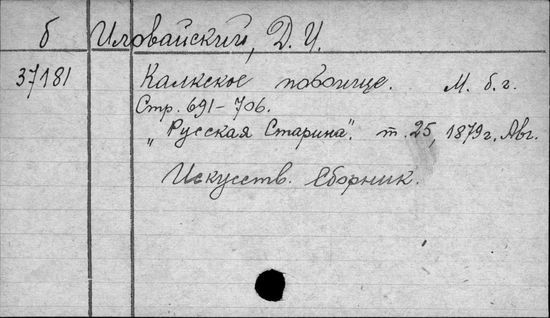 б Иловайский, Д. И.
37181 Калкское побоище. М. б. г.
Стр. 691-706.
„Русская Старина". т. 25, 1879 г. Авг.
Искусств. Сборник.